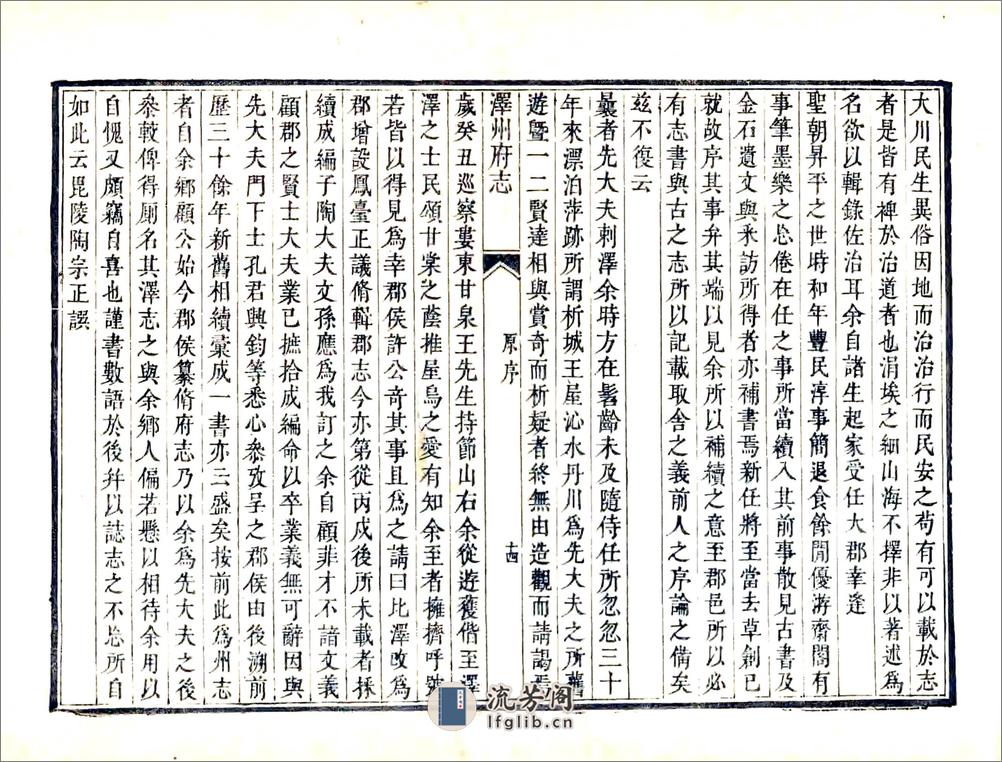 大川民生異俗因地而治治行而民安之苟有可以載於志
者是皆有裨於治道者也涓埃之細山海不擇非以著述爲
名欲以輯錄佐治耳余自諸生起家受任大郡幸逢
聖朝昇平之世時和年豐民淳事簡退食餘閒優游齋閣有
事筆墨樂之忘倦在任之事所當續入其前事散見古書及
金石遺文與釆訪所得者亦補書焉新任將至當去草創已
就故序其事弁其端以見余所以補續之意至郡邑所以必
有志書與古之志所以記載取舍之義前人之序論之備矣
茲不復云
曩者先大夫刺澤余時方在髫齡未及隨侍任所忽忽三十
年來漂泊萍跡所謂析城王屋沁水丹川爲先大夫之所舊
遊暨一二賢達相與賞奇而析疑者終無由造觀而請謁焉
澤州府志
原序
十四
歲癸丑巡察婁東甘泉王先生持節山右余從遊獲偕至澤
澤之士民頌甘棠之蔭推屋烏之愛有知余至者擁擠呼號
若皆以得見爲幸郡侯許公奇其事且爲之請曰比澤改爲
郡增設鳳臺正議脩輯郡志今亦第從丙戌後所未載者採
續成編子陶大夫文孫應爲我訂之余自顧非才不諳文義
顧郡之賢士大夫業已摭拾成編命以卒業義無可辭因與
先大夫門下士孔君興鈞等悉心叅攷呈之郡侯由後溯前
歷三十餘年新舊相續彙成一書亦云盛矣按前此爲州志
者自余鄉顧公始今郡侯纂脩府志乃以余爲先大夫之後
叅較俾得厠名其澤志之與余鄉人偏若懸以相待余用以
自愧又頗竊自喜也謹書數語於後幷以誌志之不忘所自
如此云毘陵陶宗正譔
流芳阁
lfglib.cn